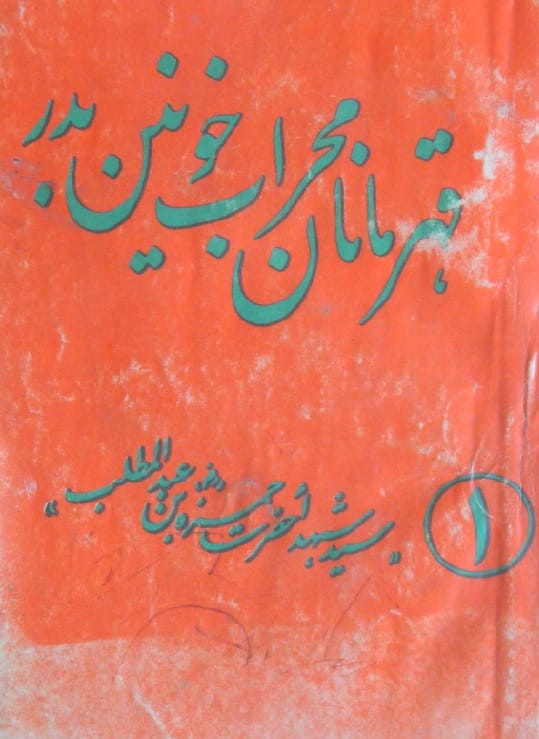 قهرمانان محراب خونین بدر
۱
«سید شهدا حضرت حمزه بن عبدالمطلب رض»